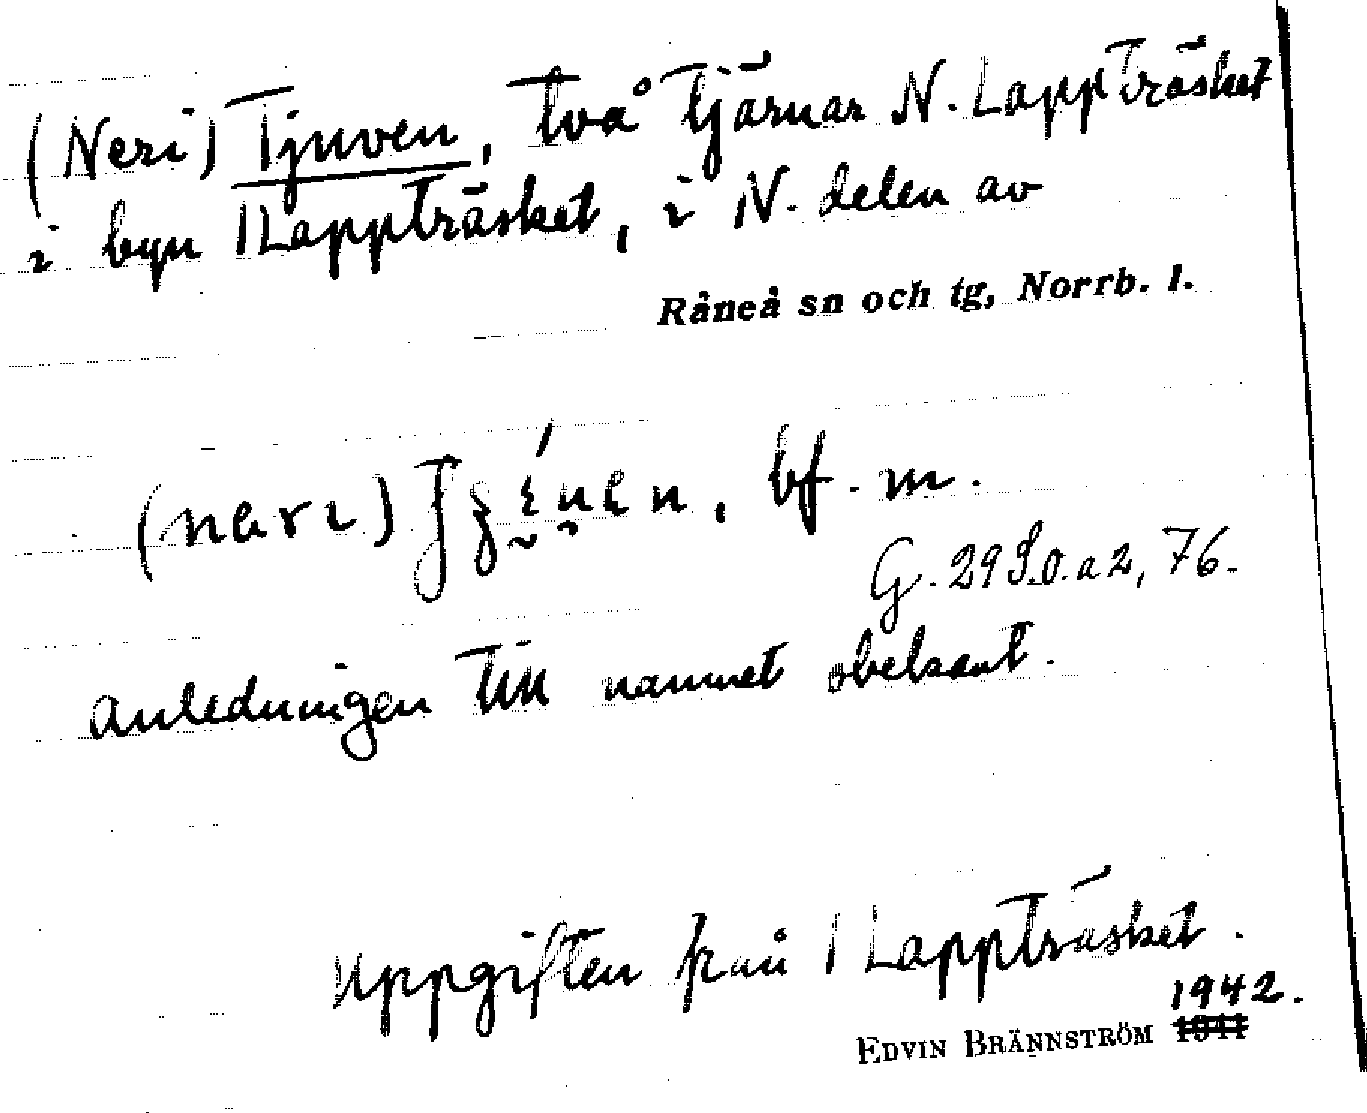 (Neri) Tjuven, två tjärnar N. Lappträsket
i byn 1 Lappträsket, i N. delen av
Råneå sn och tg, Norrb. l.
bf. m.
G. 29 S.o. a 2, 76.
Anledningen till namnet obekant.
Uppgiften från 1 Lappträsket.
1942.
EDVIN BRÄNNSTRÖM 1941